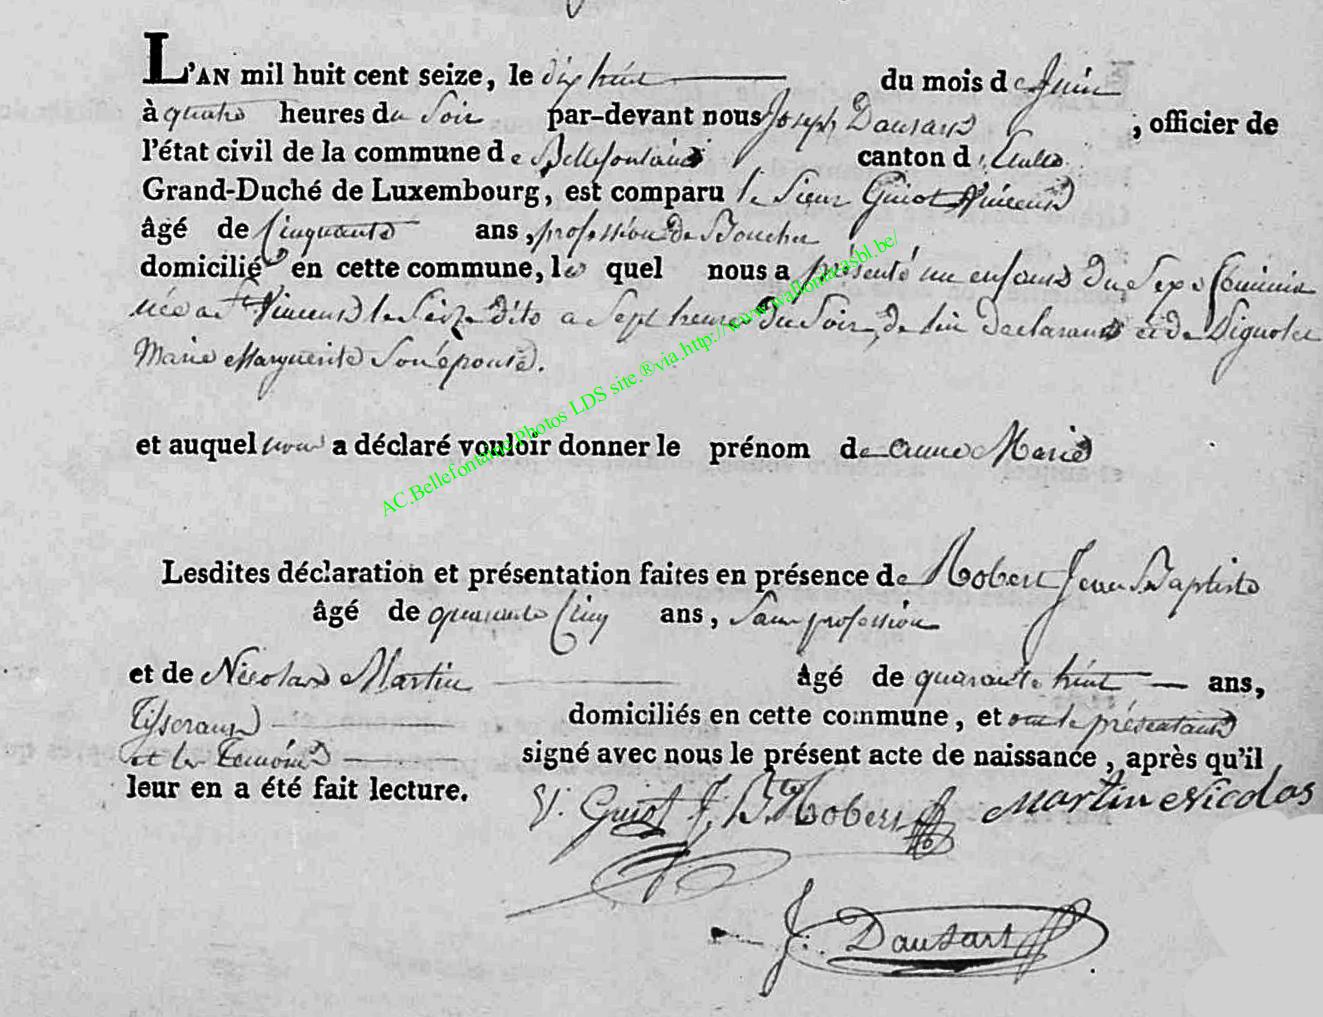 L'AN mil huit cent seize, le dix huit du mois de Juin
à quatre heures du Soir par-devant nous Joseph Dausart, officier de
l'état civil de la commune de Bellefontaine canton d'Etalle
Grand-Duché de Luxembourg, est comparu le Sieur Guiot Vincent
âgé de Cinquante ans, profession de Boucher
domicilié en cette commune, le quel nous a présenté un enfant du Sexe féminin
née a St Vincent le Seize dito a Sept heures du Soir, de lui declarant et de
Marie Marguerite Son épouse.
et auquel a déclaré vouloir donner le prénom de anne Marie
Lesdites déclaration et présentation faites en présence de Robert Jean Baptiste
âgé de quarante Cinq ans, Sans profession
et de Nicolas Martin âgé de quarante huit ans,
Tisserand domiciliés en cette commune, et ont le présentant
et les Temoins signé avec nous le présent acte de naissance, après qu'il
leur en a été fait lecture.
V. Guiot J. Bte Robert Martin Nicolas
J. Dausart
AC.Bellefontaine.Photos LDS site.®via.http://www.wallonia.asbl.be/